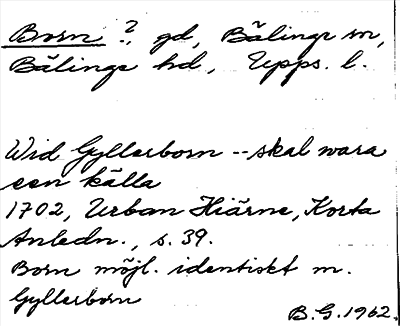 Born ?, gd, Bälinge sn,
Bälinge hd, Upps. l.
Wid Gyllerborn -- skal wara
een källa
1702, Urban Hiärne, Korta
Anledn., s. 39.
Born möjl. identiskt m.
Gyllerborn
B.G. 1962.